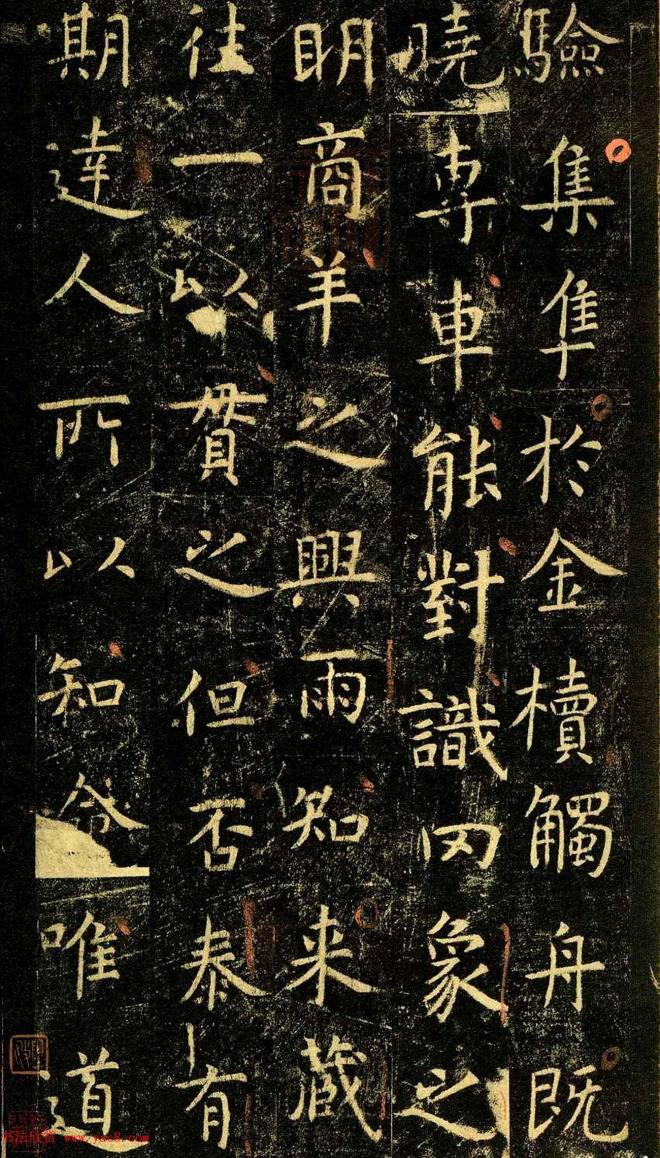 驗集隼於金櫝觸舟既
曉専車能對識罔象之
明商羊之興雨知来蔵
往一以貫之但否泰有
期達人所以知命唯道
书法欣赏 www.yac8.com